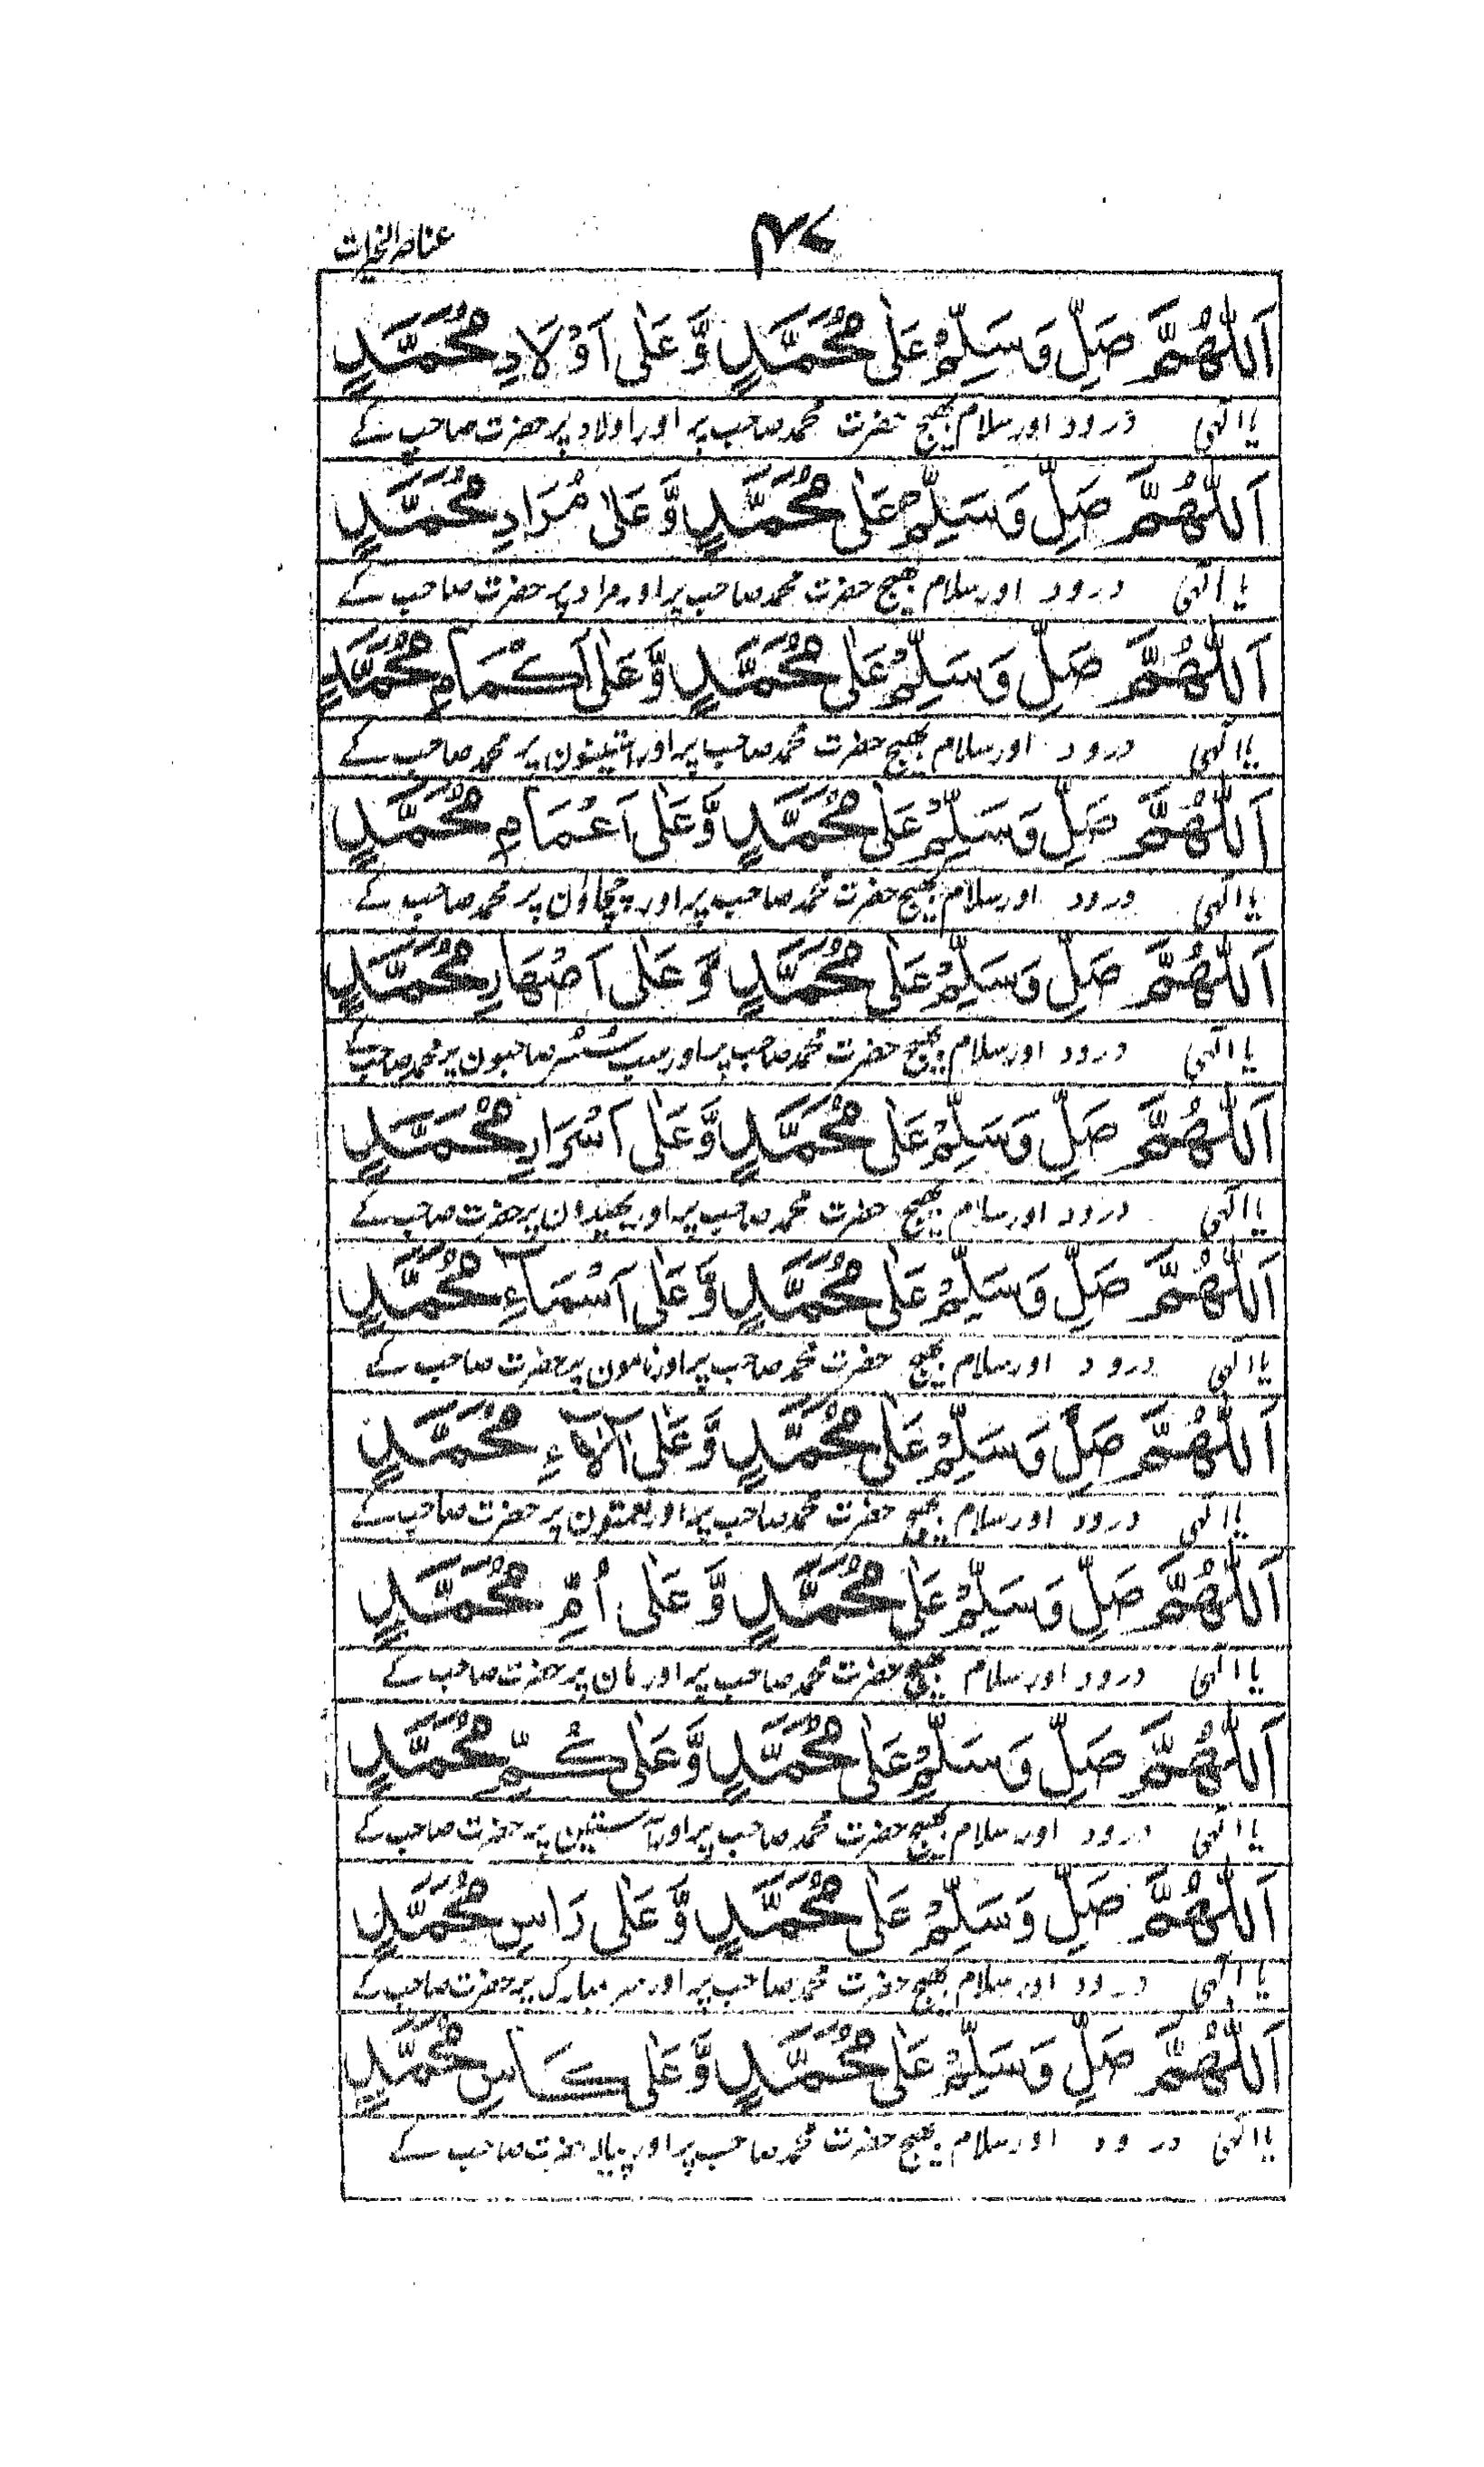 ۴۷
عناصر الخیرات
اَللّٰهُمَّ صَلِّ وَسَلِّمْ عَلٰى مُحَمَّدٍ وَّعَلٰى اَوْلَادِ مُحَمَّدٍ
یا الٰہی درود اور سلام بھیج حضرت محمد صاحب پر اور اولاد پر حضرت صاحب کے
اَللّٰهُمَّ صَلِّ وَسَلِّمْ عَلٰى مُحَمَّدٍ وَّعَلٰى مُرَادِ مُحَمَّدٍ
یا الٰہی درود اور سلام بھیج حضرت محمد صاحب پر اور مراد پر حضرت صاحب کے
اَللّٰهُمَّ صَلِّ وَسَلِّمْ عَلٰى مُحَمَّدٍ وَّعَلٰى اَكْمَامِ مُحَمَّدٍ
یا الٰہی درود اور سلام بھیج حضرت محمد صاحب پر اور استینون پر محمد صاحب کے
اَللّٰهُمَّ صَلِّ وَسَلِّمْ عَلٰى مُحَمَّدٍ وَّعَلٰى اَعْمَامِ مُحَمَّدٍ
یا الٰہی درود اور سلام بھیج حضرت محمد صاحب پر اور چچاؤن پر محمد صاحب کے
اَللّٰهُمَّ صَلِّ وَسَلِّمْ عَلٰى مُحَمَّدٍ وَّعَلٰى اَصْهَارِ مُحَمَّدٍ
یا الٰہی درود اور سلام بھیج حضرت محمد صاحب پر اور سب سسر صاحبون پر محمد صاحب کے
اَللّٰهُمَّ صَلِّ وَسَلِّمْ عَلٰى مُحَمَّدٍ وَّعَلٰى اَسْرَارِ مُحَمَّدٍ
یا الٰہی درود اور سلام بھیج حضرت محمد صاحب پر اور بھیدون پر حضرت صاحب کے
اَللّٰهُمَّ صَلِّ وَسَلِّمْ عَلٰى مُحَمَّدٍ وَّعَلٰى اَسْمَآءِ مُحَمَّدٍ
یا الٰہی درود اور سلام بھیج حضرت محمد صاحب پر اور نامون پر حضرت صاحب کے
اَللّٰهُمَّ صَلِّ وَسَلِّمْ عَلٰى مُحَمَّدٍ وَّعَلٰى اٰلَآءِ مُحَمَّدٍ
یا الٰہی درود اور سلام بھیج حضرت محمد صاحب پر اور نعمتون پر حضرت صاحب کے
اَللّٰهُمَّ صَلِّ وَسَلِّمْ عَلٰى مُحَمَّدٍ وَّعَلٰى اُمِّ مُحَمَّدٍ
یا الٰہی درود اور سلام بھیج حضرت محمد صاحب پر اور مان پر حضرت صاحب کے
اَللّٰهُمَّ صَلِّ وَسَلِّمْ عَلٰى مُحَمَّدٍ وَّعَلٰى كُمِّ مُحَمَّدٍ
یا الٰہی درود اور سلام بھیج حضرت محمد صاحب پر اور آستین پر حضرت صاحب کے
اَللّٰهُمَّ صَلِّ وَسَلِّمْ عَلٰى مُحَمَّدٍ وَّعَلٰى رَاسِ مُحَمَّدٍ
یا الٰہی درود اور سلام بھیج حضرت محمد صاحب پر اور سر مبارک پر حضرت صاحب کے
اَللّٰهُمَّ صَلِّ وَسَلِّمْ عَلٰى مُحَمَّدٍ وَّعَلٰى كَاسِ مُحَمَّدٍ
یا الٰہی درود اور سلام بھیج حضرت محمد صاحب پر اور پیالہ حضرت صاحب کے